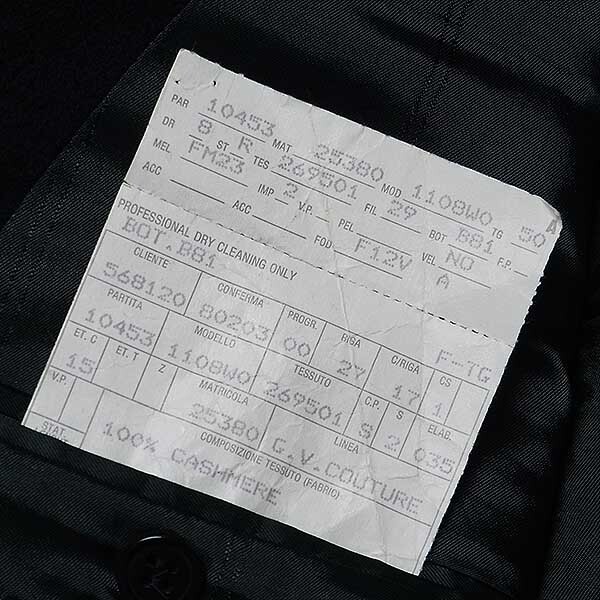 PAR 10453 MAT 25380 MOD 1108W0 TG 50 A
DR 8 R ST TES 269501 FIL 29 BOT B81 F.P.
MEL FM23 IMP 2 V.P. PEL VEL NO
ACC ACC FOD F12V A
PROFESSIONAL DRY CLEANING ONLY
BOT.B81 F-TG
CLIENTE CONFERMA PROGR. RIGA C/RIGA CS
568120 80203 00 27 17 1
PARTITA MODELLO TESSUTO C.P. S ELAB.
10453 1108W0 269501 S 2 035
ET. C ET. T Z MATRICOLA LINEA
15 25380 G.V.COUTURE
V.P.
STAT. COMPOSIZIONE TESSUTO (FABRIC)
100% CASHMERE